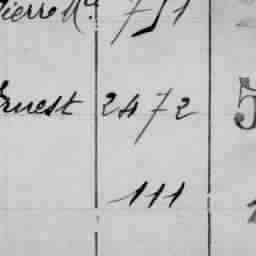 Pierre M^d. 751
Ernest 2472 5
111